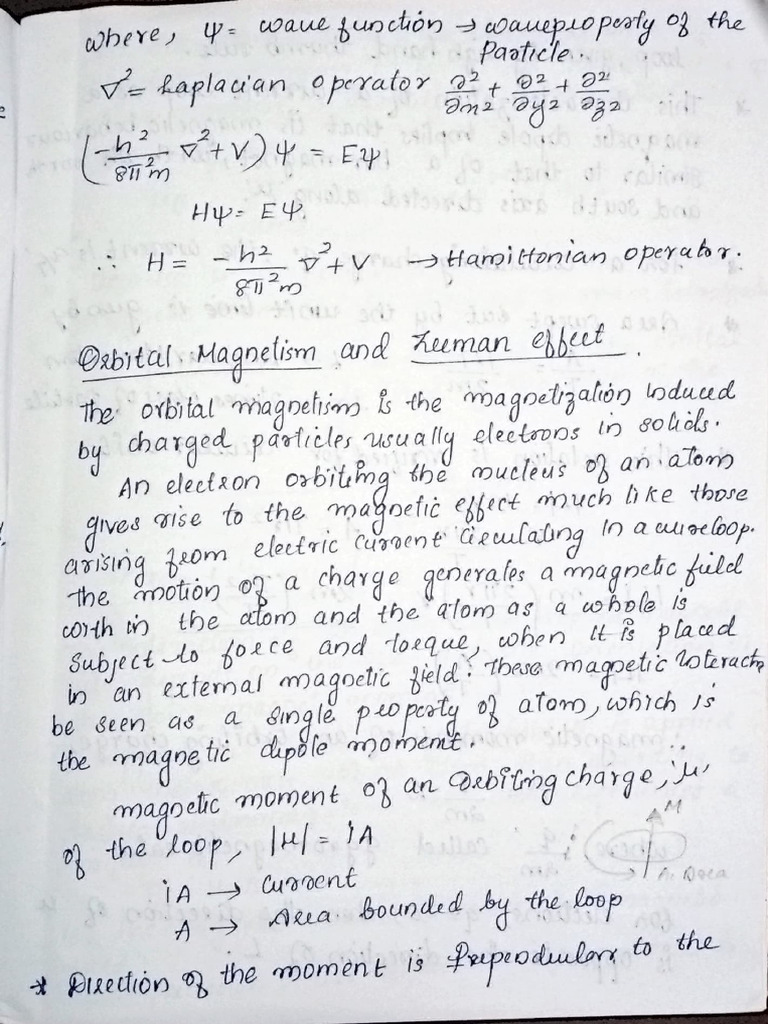 where, ψ = wave function → waveproperty of the
Particle.
∇² = Laplacian operator ∂²/∂x² + ∂²/∂y² + ∂²/∂z²
(-h²/8π²m ∇² + V) ψ = Eψ
Hψ = Eψ.
∴ H = -h²/8π²m ∇² + V → Hamiltonian operator.
Orbital Magnetism and Zeeman effect.
The orbital magnetism is the magnetization induced
by charged particles usually electrons in solids.
An electron orbiting the nucleus of an atom
gives rise to the magnetic effect much like those
arising from electric current circulating in a wireloop.
The motion of a charge generales a magnetic field
worth in the atom and the atom as a whole is
Subject to force and torque, when it is placed
in an external magnetic field. These magnetic interacts
be seen as a single property of atom, which is
the magnetic dipole moment.
magnetic moment of an orbiting charge, 'μ'
of the loop, |μ| = iA
iA → Current
A → Area bounded by the loop
M
A. Area
* Direction of the moment is Prependicularr to the